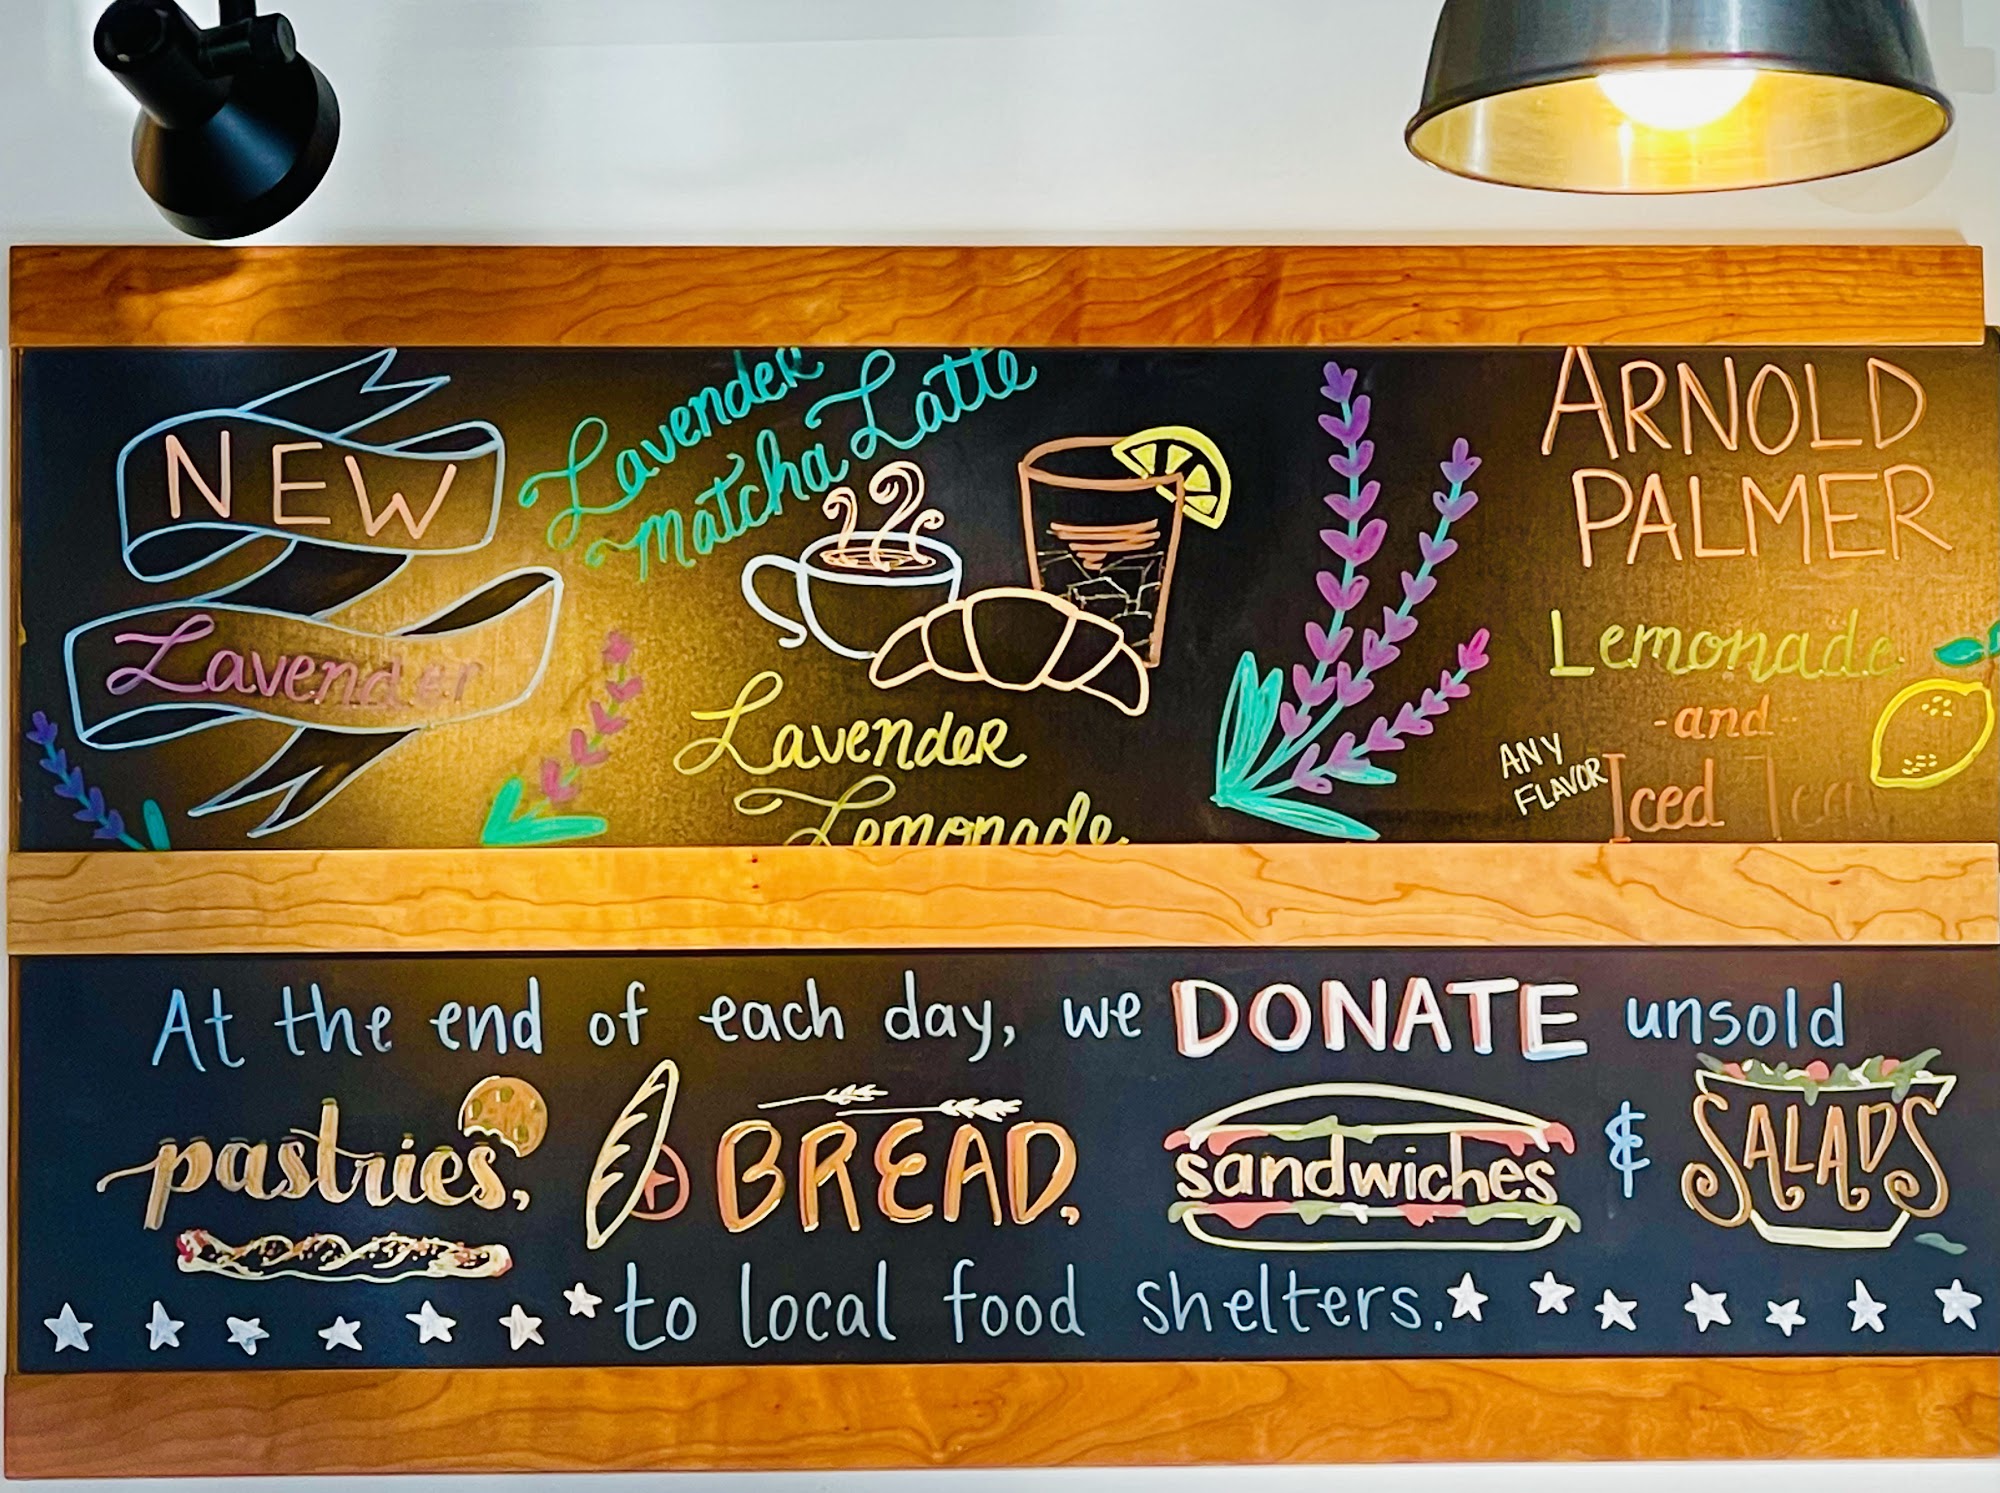 NEW
Lavender
Lavender
Matcha Latte
Lavender
Lemonade
ARNOLD
PALMER
Lemonade
-and-
ANY
FLAVOR
Iced Tea
At the end of each day, we DONATE unsold
pastries, BREAD, sandwiches & SALADS
to local food shelters.